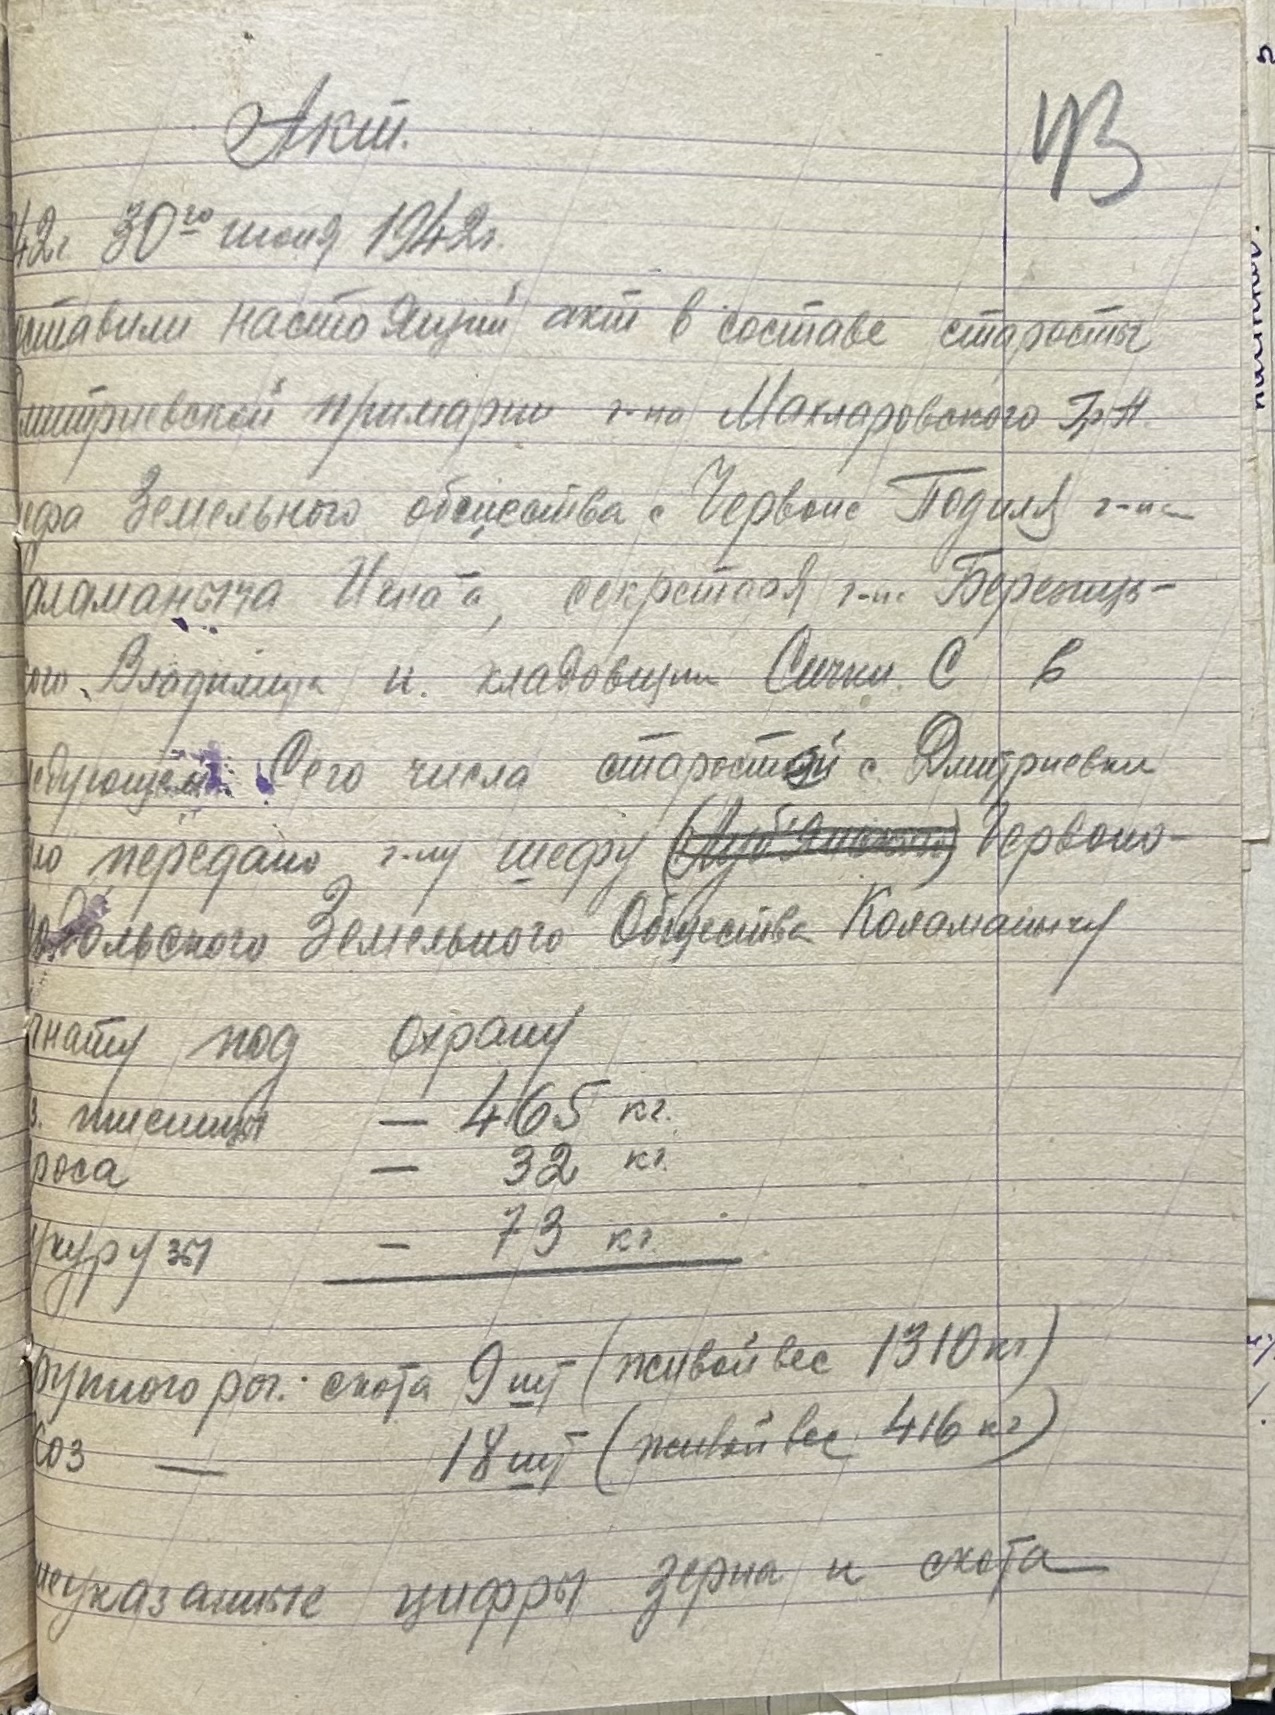 Акт.
43
42г. 30го июня 1942г.
ставили настоящий акт в составе старосты
Дмитриевской примарии г-на Макларовского Гр. А.
ефа Земельного общества с Червоне Подилля г-на
аламаныча Игната, секретаря г-на Березиць-
кого Владимира и кладовщик Сички С в
едующем Сего числа старостой с. Дмитриевки
но передано г-ну шефу Червоно-
подольского Земельного Общества Коламанычу
гнату под охрану
з. пшеницы — 465 кг.
роса — 32 кг.
укурузы — 73 кг.
рупного рог. скота 9 шт (живой вес 1310 кг)
Коз — 18 шт (живой вес 416 кг)
неуказанные цифры зерна и скота